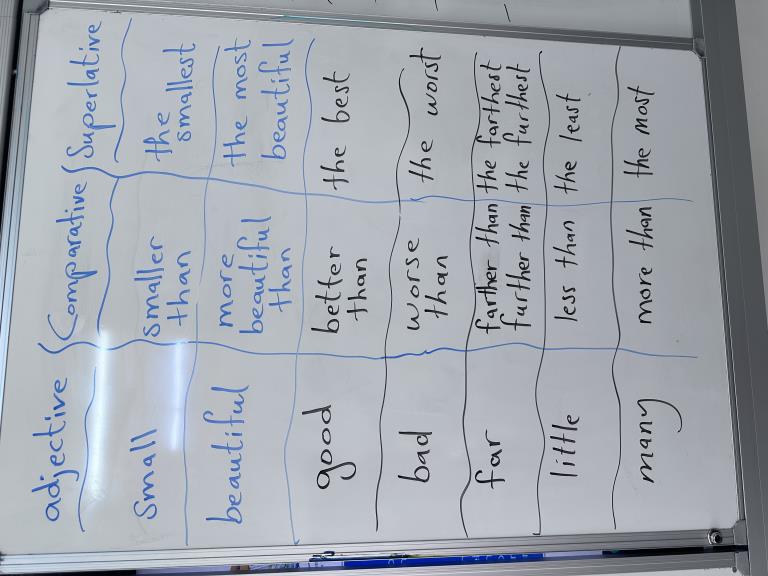 adjective Comparative Superlative
small smaller than the smallest
beautiful more beautiful than the most beautiful
good better than the best
bad worse than the worst
far farther than the farthest
further than the furthest
little less than the least
many more than the most